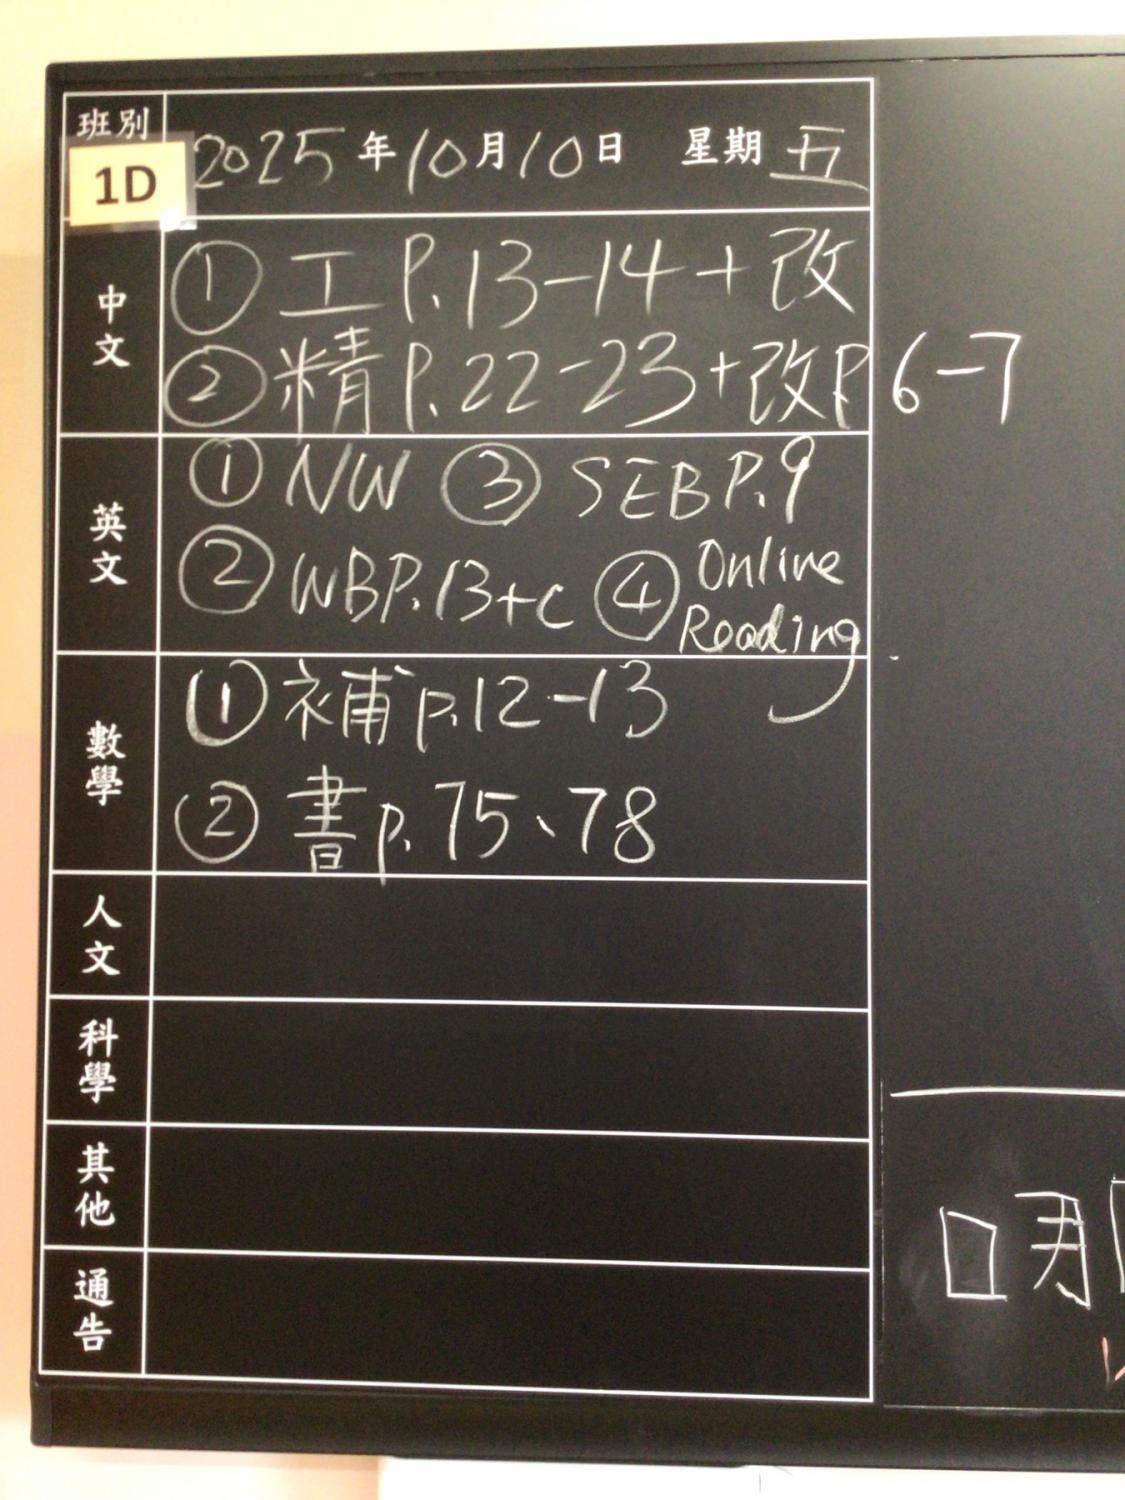 班別
1D
2025年10月10日 星期五
中文
① 工 P.13-14 + 改
② 精 P.22-23 + 改P.6-7
英文
① NW ③ SEB P.9
② WBP.13+c ④ Online
Reading
數學
① 補 p.12-13
② 書 p.75、78
人文
科學
其他
通告